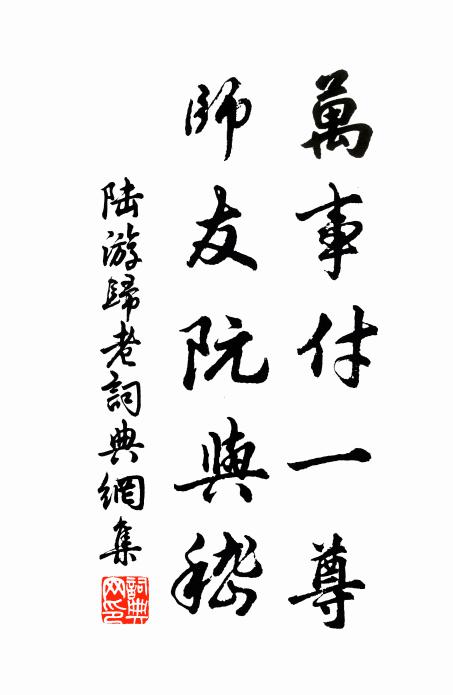 萬事付一尊
師友阮與嵇
陸游歸老詞典網集
詞典网印